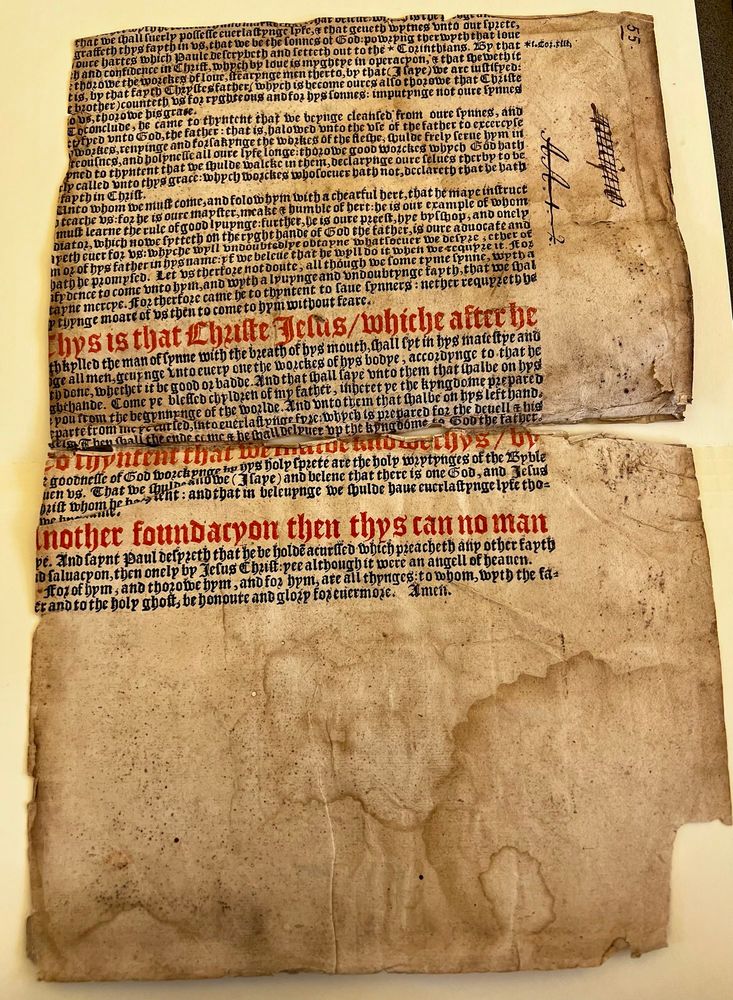 that we shall suerly possesse euerlastynge lyfe, & that geueth wytnes vnto our sprete,
graffeth thys fayth in vs, that we be the sonnes of God: powryng therwyth that loue
oure hartes which Paule descrybeth and setteth out to the * Corinthians. By that
*1.Cor.xiii,
h and confidence in Christ, whych by loue is myghtye in operacyon, & that sheweth it
thorowe the worckes of loue, stearynge men therto, by that (I saye) we are iustifyed:
is, by that fayth Chrystes father (whych is become oures also thorowe that Christe
brother) counteth vs for ryghteous and for hys sonnes: imputynge not oure synnes
o vs, thorowe his grace.
conclude, he came to thyntent that we beynge clensed from oure synnes, and
tyfyed vnto God, the father: that is, halowed vnto the vse of the father to exercyse
workes, renyinge and forsakynge the workes of the fleshe, shulde frely serue hym in
teousnes, and holynesse all oure lyfe longe: thorowe good worckes whych God hath
yned to thyntent that we shulde walcke in them, declarynge oure selues therby to be
ly called vnto thys grace: whych worckes whosoeuer hath not, declareth that he hath
fayth in Christ.
Unto whom we must come, and folow hym with a chearful hert, that he maye instruct
teache vs: for he is oure mayster, meake & humble of hert: he is our example of whom
must learne the rule of good lyuynge: further, he is oure preest, hye byshop, and onely
diator, which nowe sytteth on the ryght hande of God the father, is oure aduocate and
yeth euer for vs: whyche wyll vndoubtedlye obtayne whatsoeuer we desyre, ether of
m or of hys father in hys name: yf we beleue that he wyll do it when we requyre it. For
hath he promysed. Let vs therfore not doute, all though we some tyme synne, wyth a
fydence to come vnto hym, and wyth a lyuynge and vndoubtynge fayth, that we shal
tayne mercye. For therfore came he to thyntent to saue synners: nether requyreth he
y thynge moare of vs then to come to hym without feare.
Thys is that Christe Jesus/whiche after he
th kylled the man of synne with the breath of hys mouth, shall syt in hys maiestye and
ge all men, geuynge vnto euery one the worckes of hys bodye, accordynge to that he
h done, whether it be good or badde. And that shall saye vnto them that shalbe on hys
ghthande. Come ye blessed chyldren of my father, inheret ye the kyngdome prepared
you from the begynnynge of the worlde. And vnto them that shalbe on hys left hand.
parte from me ye cursed, into euerlastynge fyre: whych is prepared for the deuell & his
Then shall the ende come & he shall delyuer vp the kyngdome to God the father.
To thyntent that we know thys/ by
goodnesse of God worckynge by hys holy sprete are the holy wrytynges of the Byble
uen vs. That we shulde knowe (I saye) and beleue that there is one God, and Jesus
hrist whom he hath sent: and that in beleuynge we shulde haue euerlastynge lyfe tho-
Another foundacyon then thys can no man
ye. And saynt Paul desyreth that he be holdē acurssed which preacheth any other fayth
d saluacyon, then onely by Jesus Christ: yee although it were an angell of heauen.
For of hym, and thorowe hym, and for hym, are all thynges: to whom, wyth the fa-
er and to the holy ghost, be honoure and glory for euermore. Amen.
55